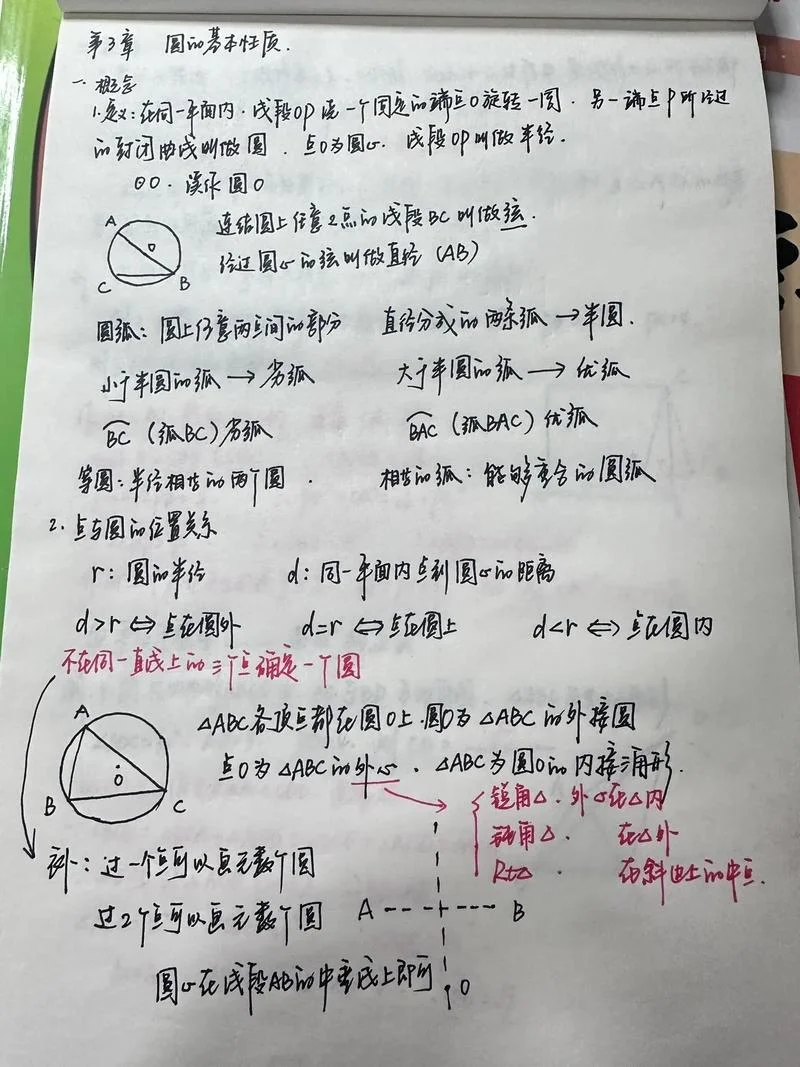 第3章 圆的基本性质.
一、概念
1.定义:在同一平面内,线段OP绕一个固定的端点O旋转一圆.另一端点P所经过
的封闭曲线叫做圆.点O为圆心.线段OP叫做半径.
⊙O.读作圆O
A O C B
连结圆上任意2点的线段BC叫做弦.
经过圆心的弦叫做直径(AB)
圆弧:圆上任意两点间的部分 直径分成的两条弧→半圆.
小于半圆的弧→劣弧 大于半圆的弧→优弧
BC(弧BC)劣弧 BAC(弧BAC)优弧
等圆:半径相等的两个圆. 相等的弧:能够重合的圆弧
2.点与圆的位置关系
r:圆的半径 d:同一平面内点到圆心的距离
d>r⇔点在圆外 d=r⇔点在圆上 d<r⇔点在圆内
不在同一直线上的三个点确定一个圆
A O B C
△ABC各顶点都在圆O上.圆O为△ABC的外接圆
点O为△ABC的外心.△ABC为圆O的内接三角形.
锐角△.外心在△内
钝角△.在△外
Rt△.在斜边上的中点.
补:过一个点可以画无数个圆
过2个点可以画无数个圆
A B
圆心在线段AB的中垂线上即可
O